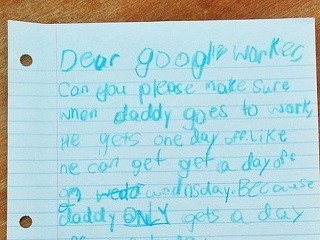 Dear google worker,
Can you please make sure
when daddy goes to work,
He gets one day off. Like
he can get get a day off
on wednsday. BECause
daddy ONLY gets a day